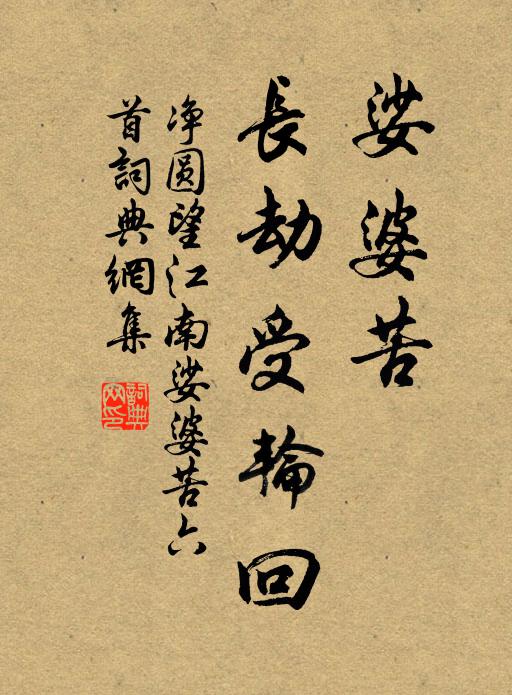 娑婆苦
長劫受輪回
净圆望江南娑婆苦六
首詞典網集
詞典
网印